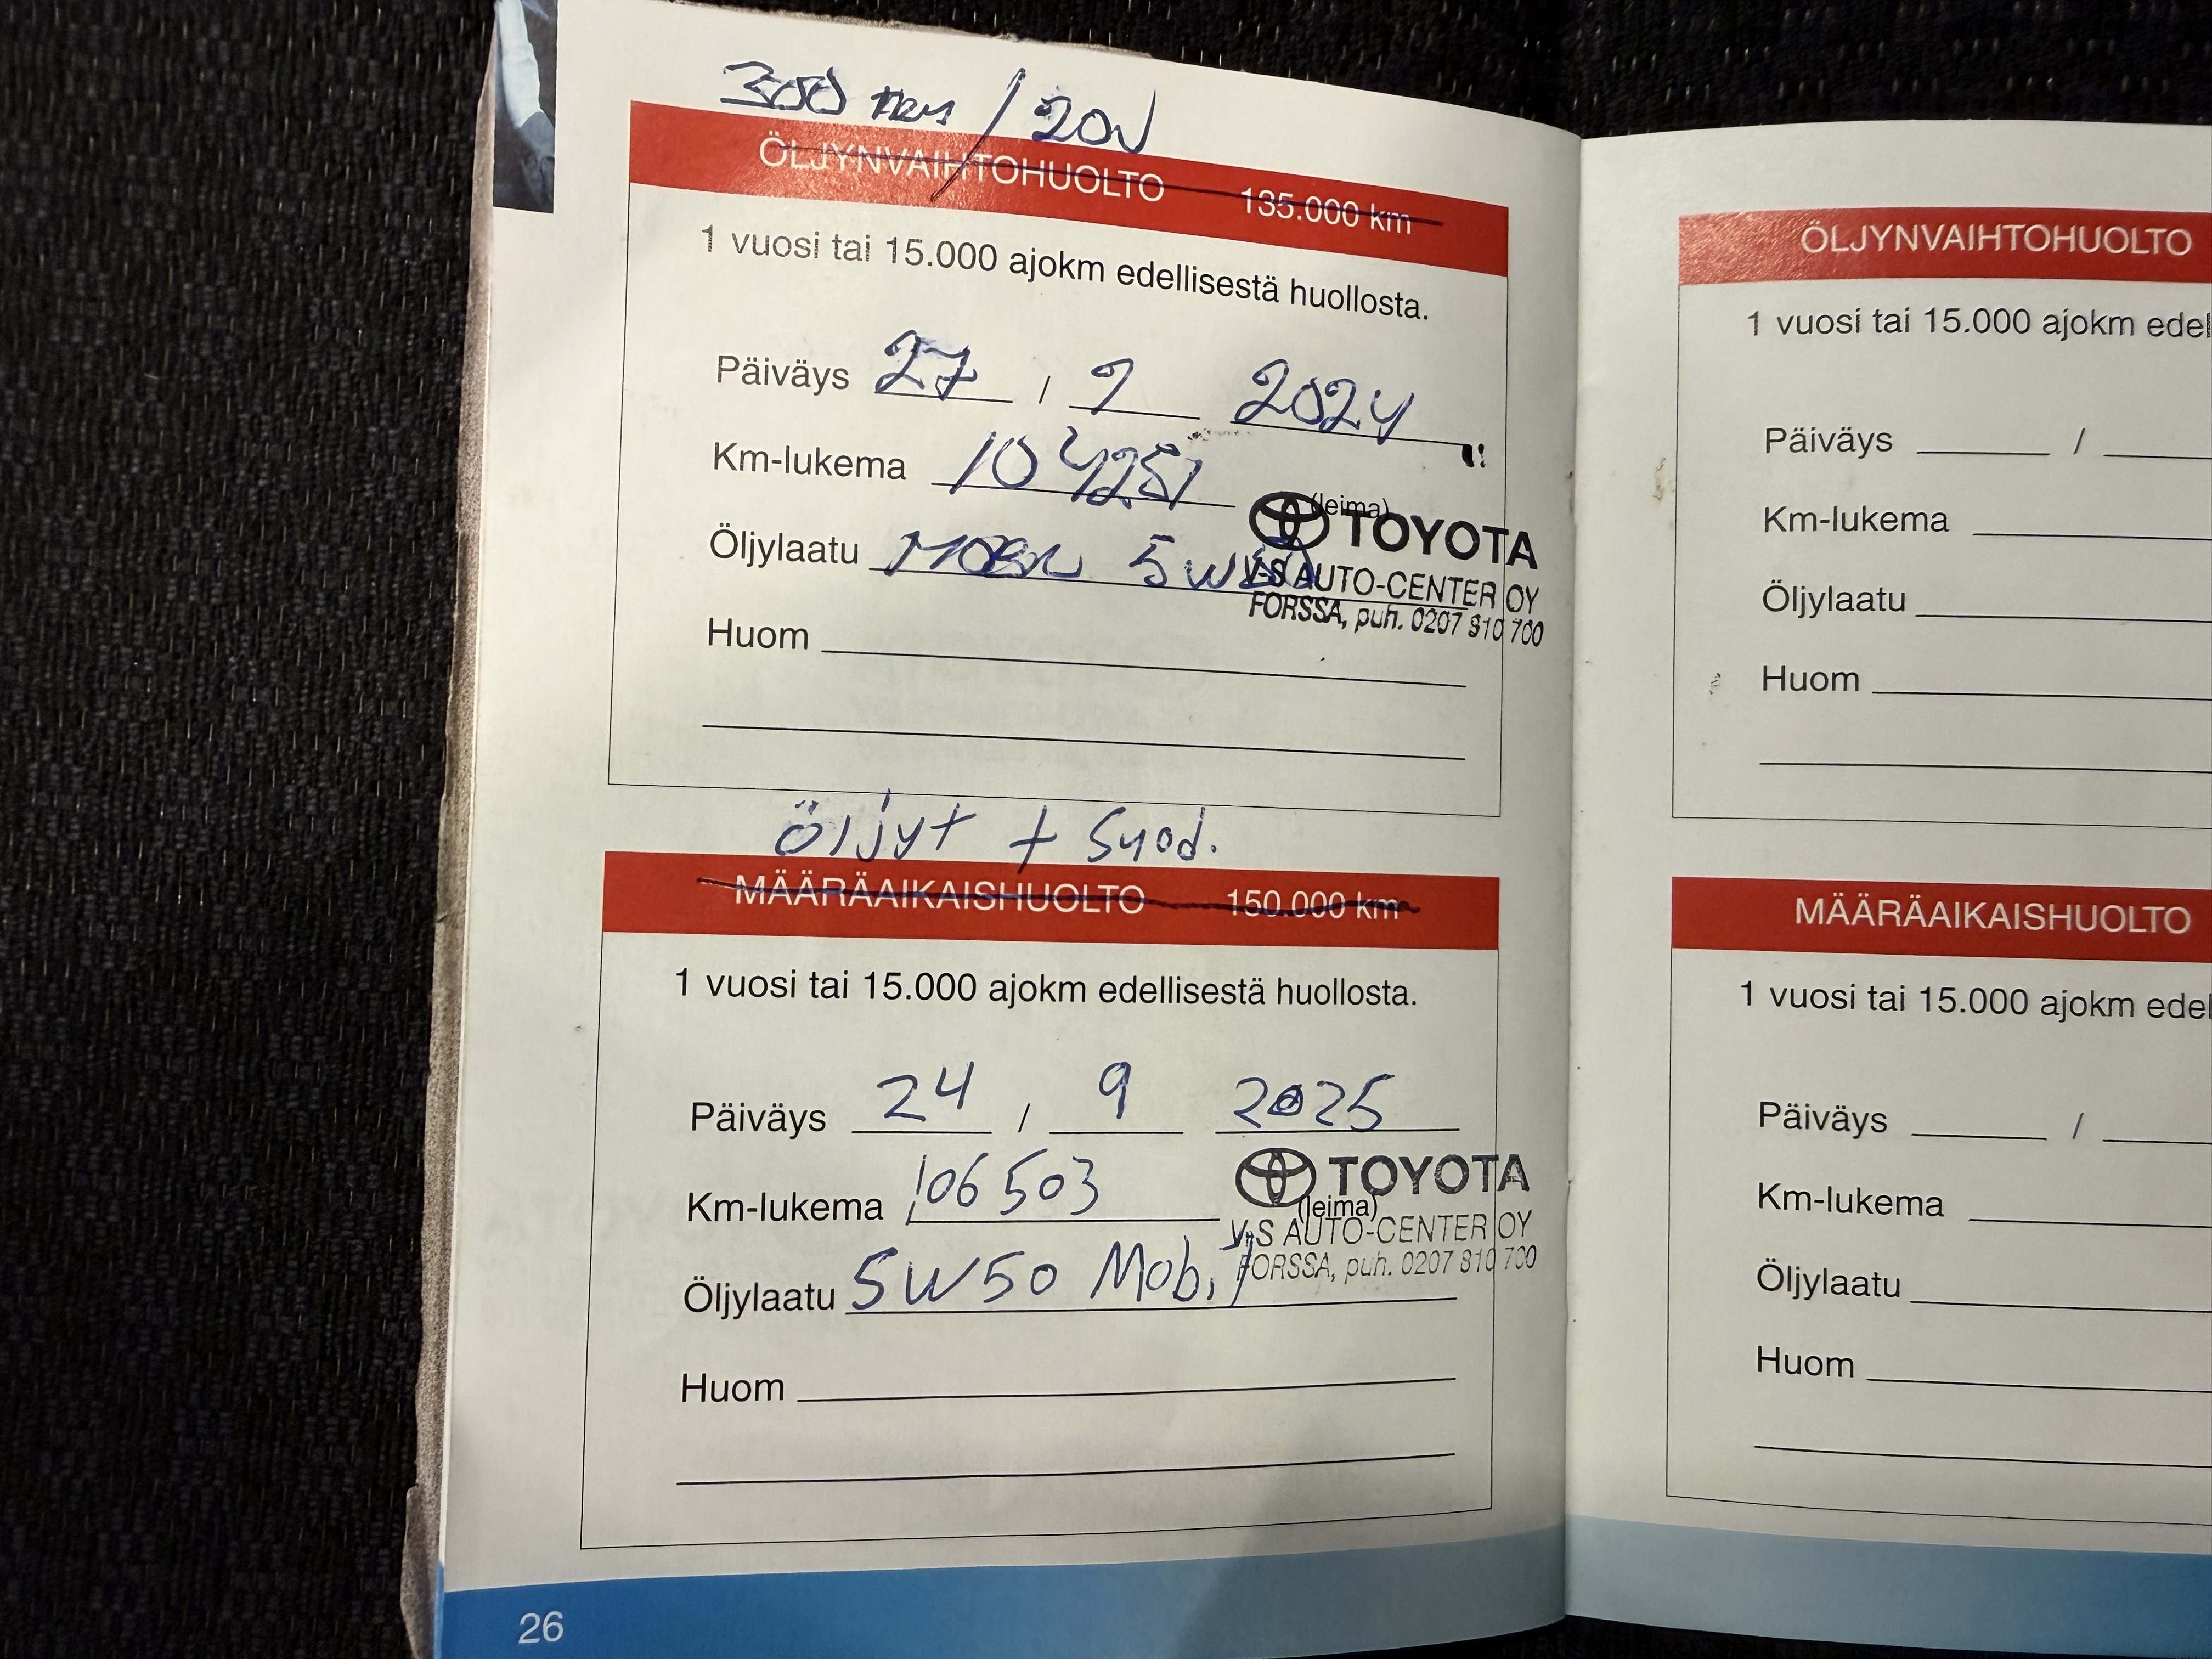 300 tkm / 20V
ÖLJYNVAIHTOHUOLTO 135.000 km
1 vuosi tai 15.000 ajokm edellisestä huollosta.
Päiväys 27 / 9 2024
Km-lukema 104251
(leima)
TOYOTA
Öljylaatu 5W50
V-S AUTO-CENTER OY
FORSSA, puh. 0207 810 700
Huom
Öljyt + Suod.
MÄÄRÄAIKAISHUOLTO 150.000 km
1 vuosi tai 15.000 ajokm edellisestä huollosta.
Päiväys 24 / 9 2025
Km-lukema 106503
TOYOTA
(leima)
V-S AUTO-CENTER OY
FORSSA, puh. 0207 810 700
Öljylaatu 5W50 Mobil
Huom
26
ÖLJYNVAIHTOHUOLTO
1 vuosi tai 15.000 ajokm edel
Päiväys /
Km-lukema
Öljylaatu
Huom
MÄÄRÄAIKAISHUOLTO
1 vuosi tai 15.000 ajokm edel
Päiväys /
Km-lukema
Öljylaatu
Huom